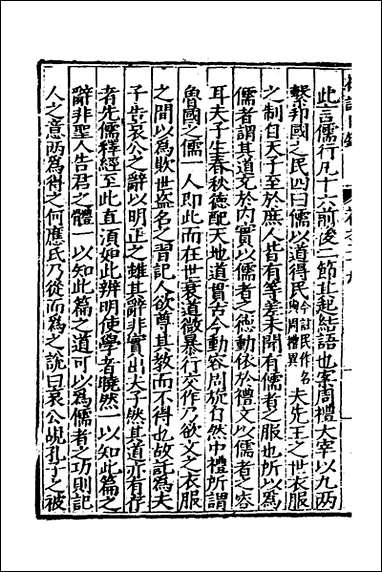 此言儒行凡十六前後二節其起結語也案周禮大宰以九兩
繫邦國之民四曰儒以道得民今註民作名與周禮異夫先王之世衣服
之制自天子至於庶人皆有等差未聞有儒者之服也所以為
儒者謂其道充於内實以儒者之德動依於禮文以儒者之容
耳夫子生春秋德配天地道貫古今動容周旋自然中禮所謂
魯國之儒一人即此而在世衰道微暴行交作乃欲文之衣服
之間以為欺世盗名之習記人欲尊其教而不得也故託為夫
子告哀公之辭以明正之雖其辭非實出夫子然其道亦有存
者先儒釋經至此直須如此辨明使學者曉然一以知此篇之
辭非聖人告君之體一以知此篇之道可以為儒者之功則記
人之意兩為得之何應氏乃從而為之說曰哀公覘孔子之被